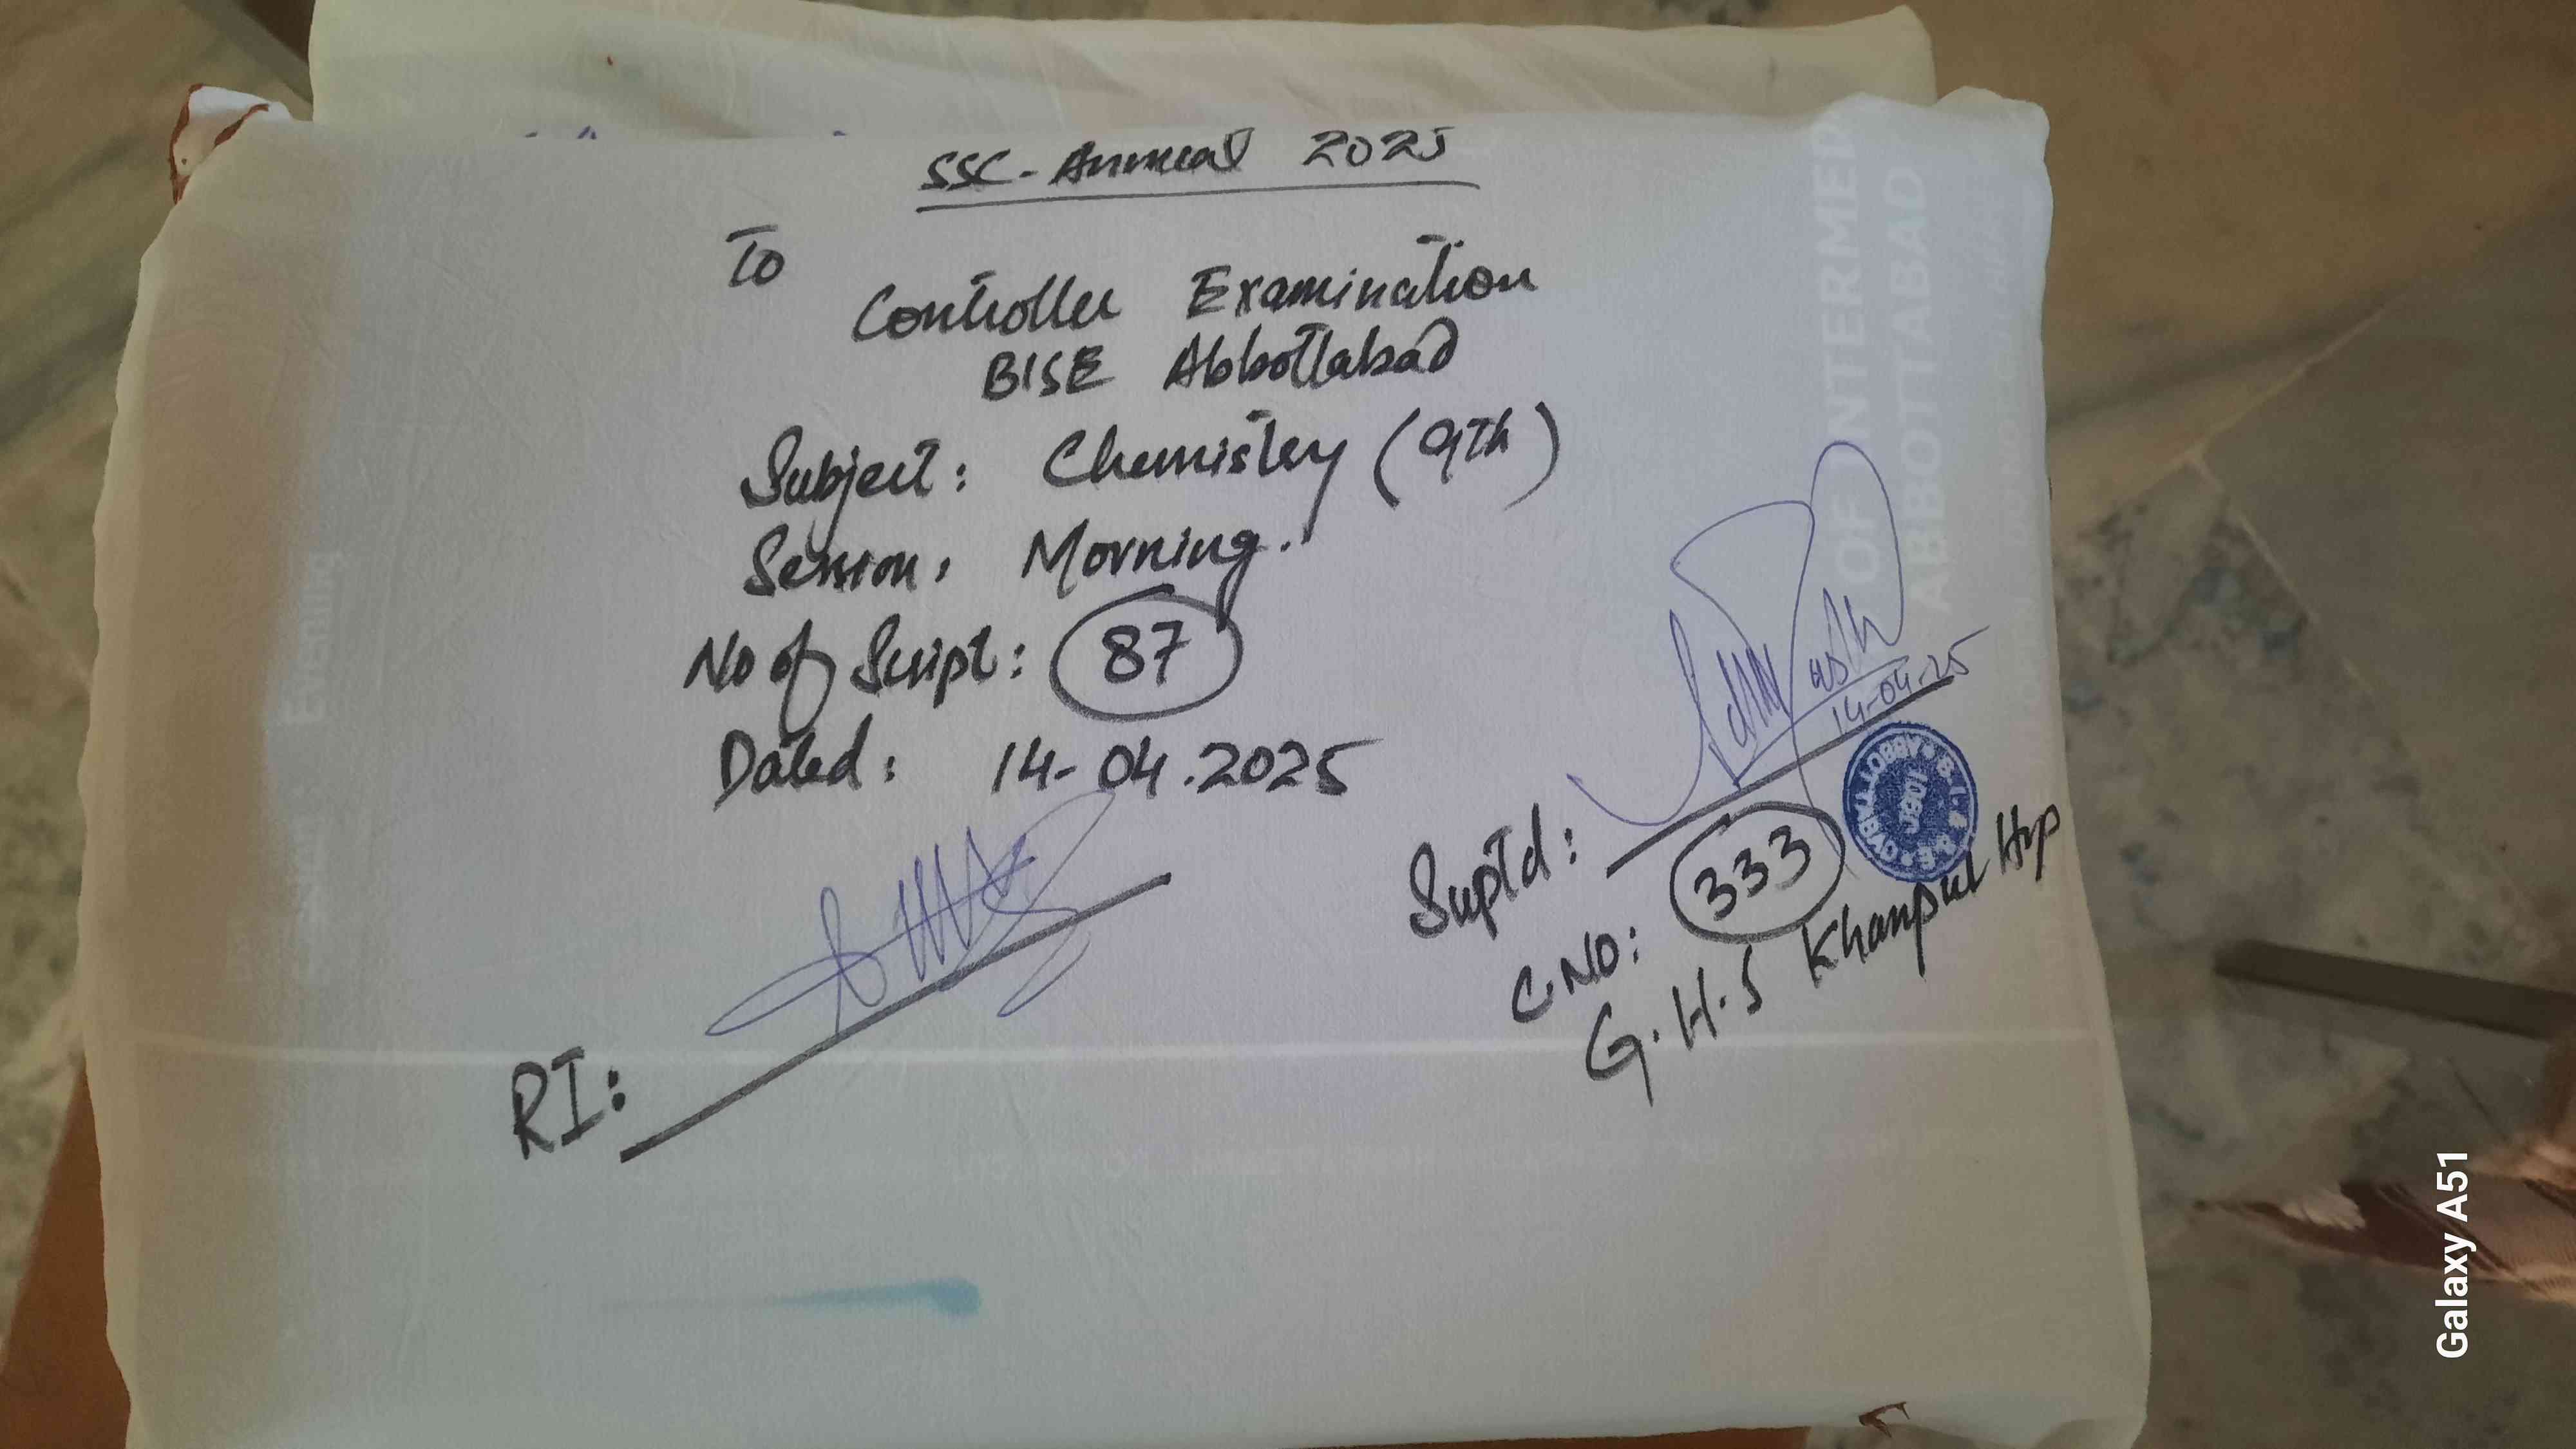 SSC-Annual 2025
To
Controller Examination
BISE Abbottabad
Subject: Chemistry (9th)
Session: Morning.
No of Script: 87
Dated: 14-04.2025
14-04-25
Suptd:
C.NO: 333
G.H.S Khanpur Hrp
RI:
OF INTERMED
ABBOTTABAD
Evening
Galaxy A51